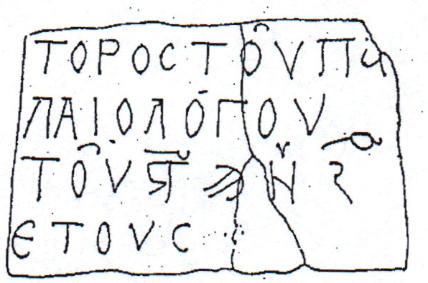 ΤΟΡΟϹΤΟῦΠα
ΛΑΙΟΛΌΓΟΥ
ΤΟῦ
ЄΤΟΥϹ